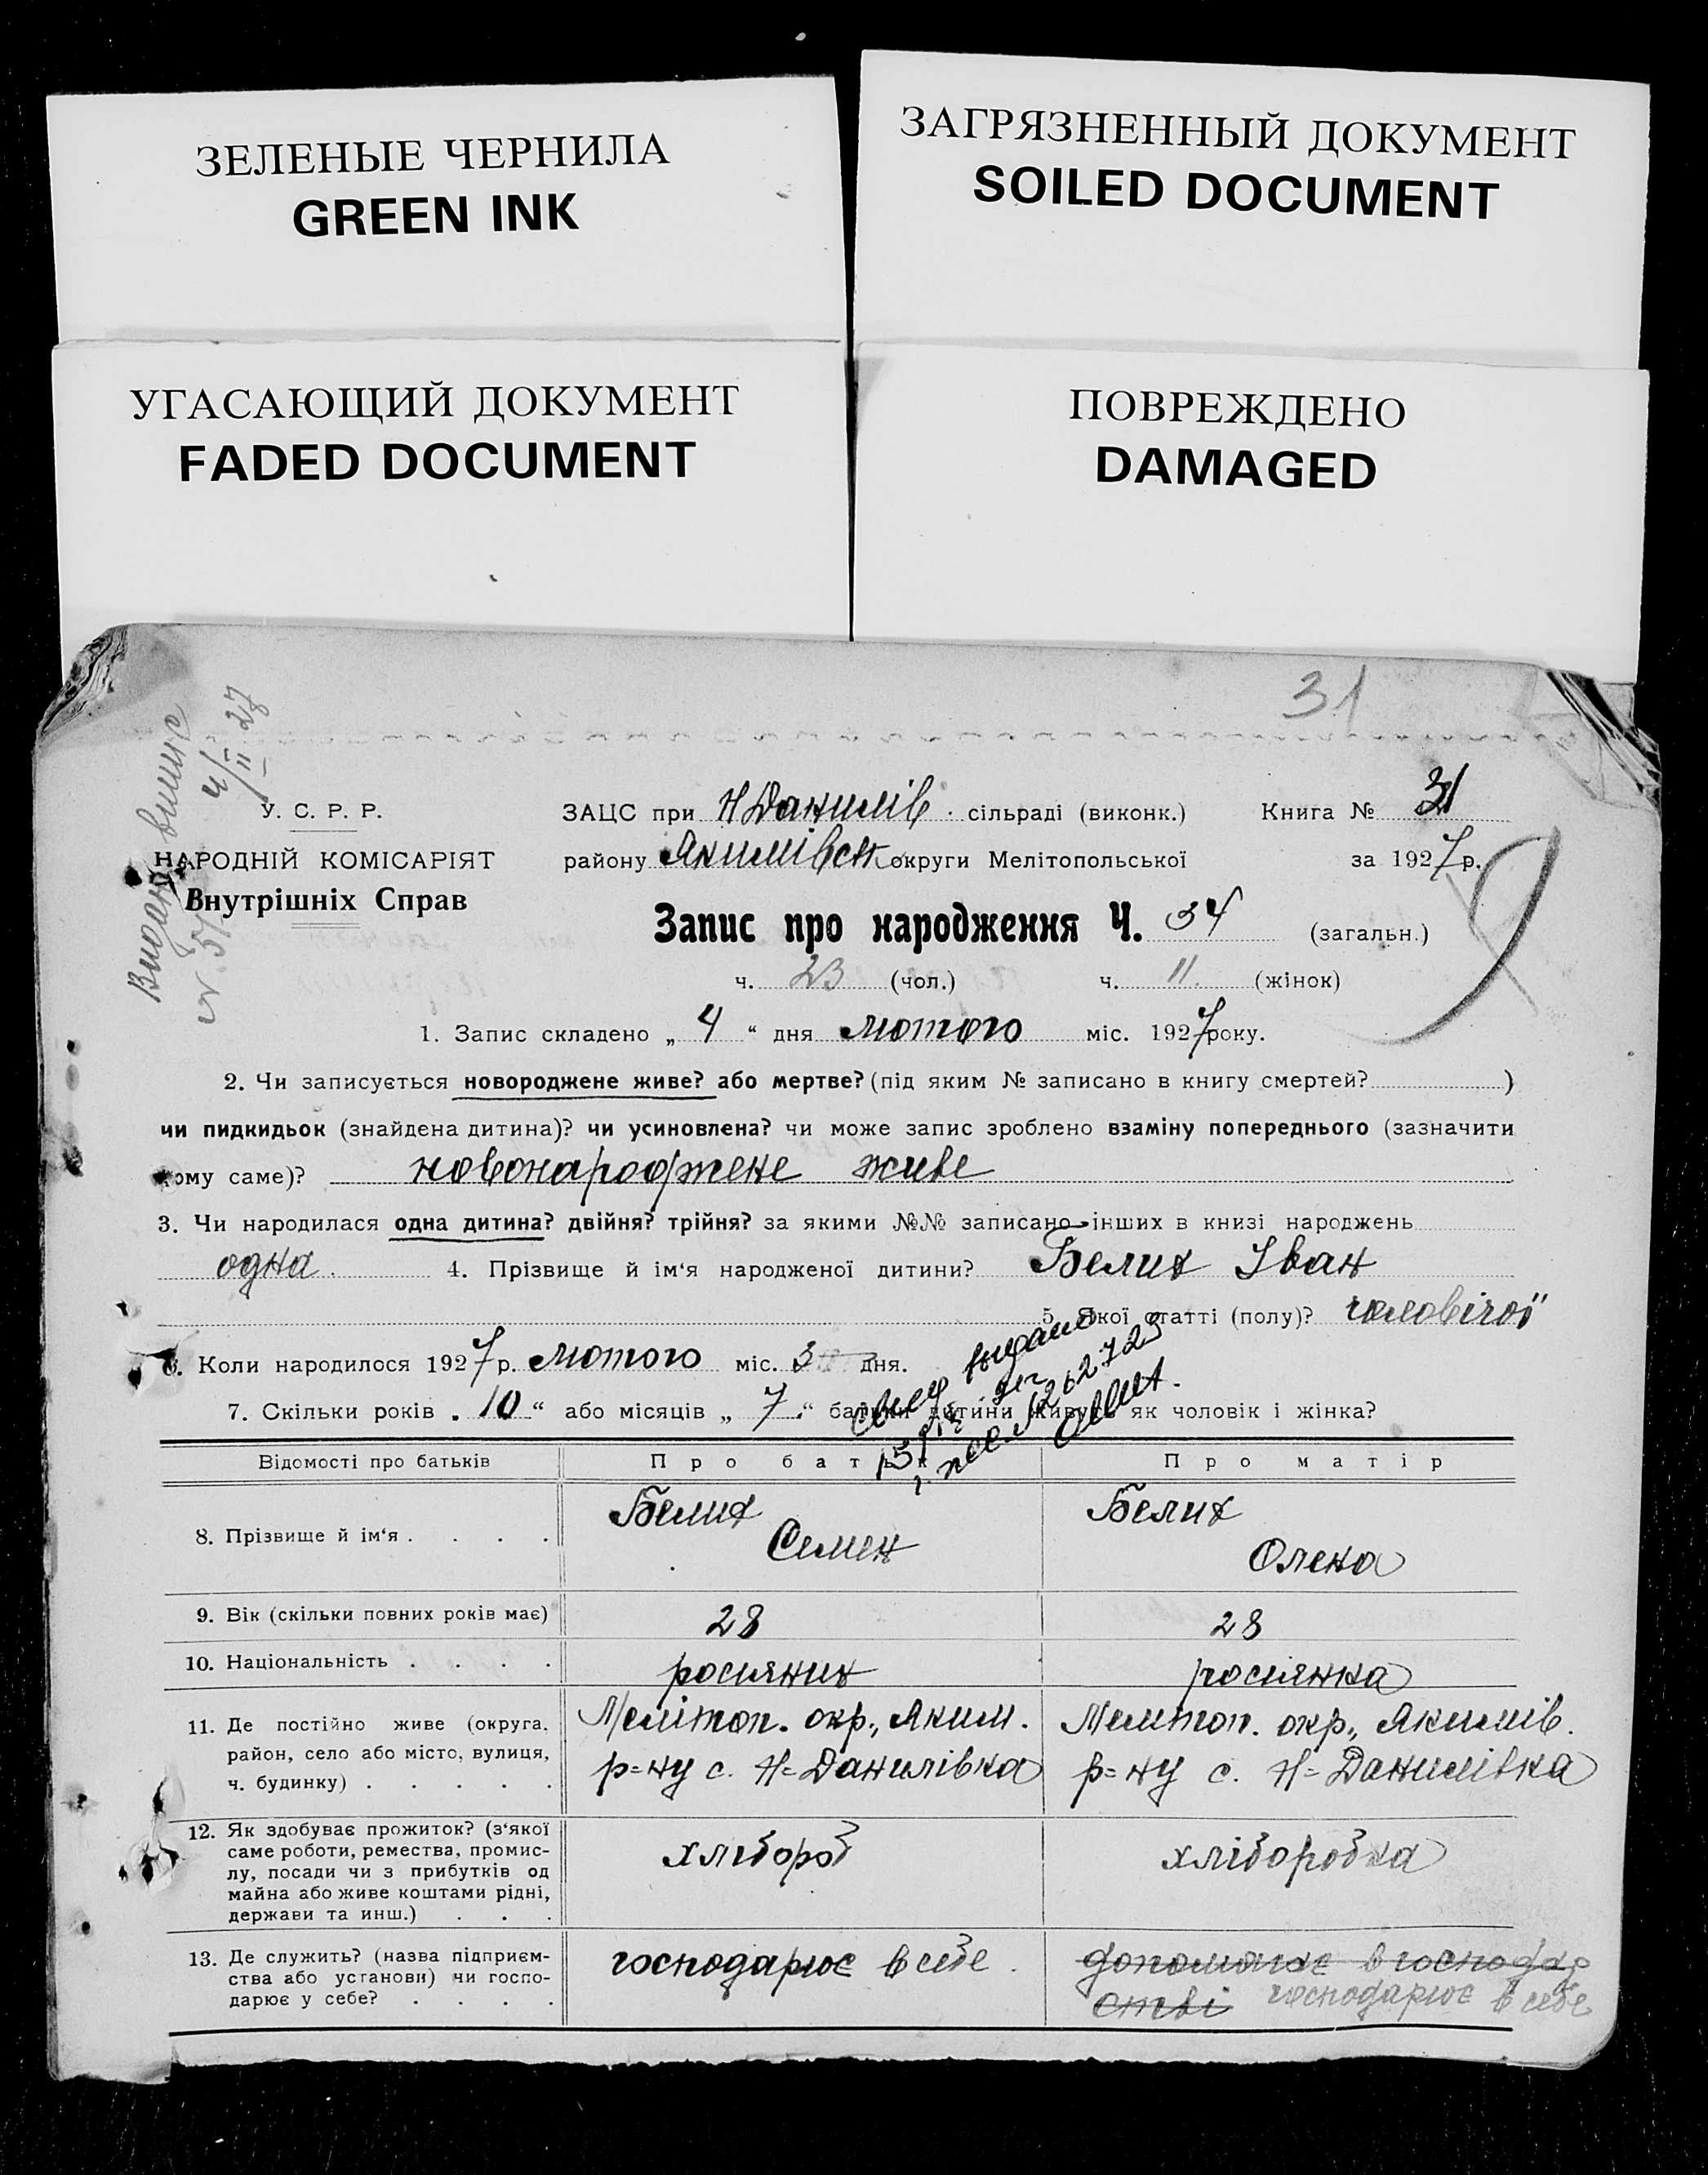 ЗЕЛЕНЫЕ ЧЕРНИЛА
GREEN INK
ЗАГРЯЗНЕННЫЙ ДОКУМЕНТ
SOILED DOCUMENT
УГАСАЮЩИЙ ДОКУМЕНТ
FADED DOCUMENT
ПОВРЕЖДЕНО
DAMAGED
31
Видан випис
4/II 27
У. С. Р. Р.
НАРОДНІЙ КОМІСАРІЯТ
Внутрішніх Справ
ЗАЦС при Н Данилів. сільраді (виконк.) Книга № 31
району Якимівськ округи Мелітопольської за 1927 р.
Запис про народження Ч. 34 (загальн.)
ч. 23 (чол.) ч. 11. (жінок)
1. Запис складено „ 4 “ дня лютого міс. 1927 року.
2. Чи записується новороджене живе? або мертве? (під яким № записано в книгу смертей? )
чи пидкидьок (знайдена дитина)? чи усиновлена? чи може запис зроблено взаміну попереднього (зазначити
ому саме)? новонароджене живе
3. Чи народилася одна дитина? двійня? трійня? за якими №№ записано інших в книзі народжень
одна. 4. Прізвище й ім‘я народженої дитини? Белих Іван
5. Якої статті (полу)? чоловічої
6. Коли народилося 1927 р. лютого міс. 3 дня.
7. Скільки років „ 10 “ або місяців „ 7 “ батьки дитини живуть як чоловік і жінка?
выдано
Відомості про батьків Про батька Про матір
8. Прізвище й ім‘я . . . . Белих Семен Белих Олена
9. Вік (скільки повних років має) 28 28
10. Національність . . . . росіяних росіянка
11. Де постійно живе (округа, Мелітоп. окр., Яким. Мелітоп. окр., Якимів.
район, село або місто, вулиця, р=ну с. Н=Данилівка р=ну с. Н=Данилівка
ч. будинку) . . . . .
12. Як здобуває прожиток? (з‘якої
саме роботи, ремества, промис- хлібороб хліборобка
лу, посади чи з прибутків од
майна або живе коштами рідні,
держави та инш.) . . .
13. Де служить? (назва підприєм- господарює в себе. допомогає в господар
ства або установи) чи госпо- стві господарює в себе
дарює у себе? . . . .